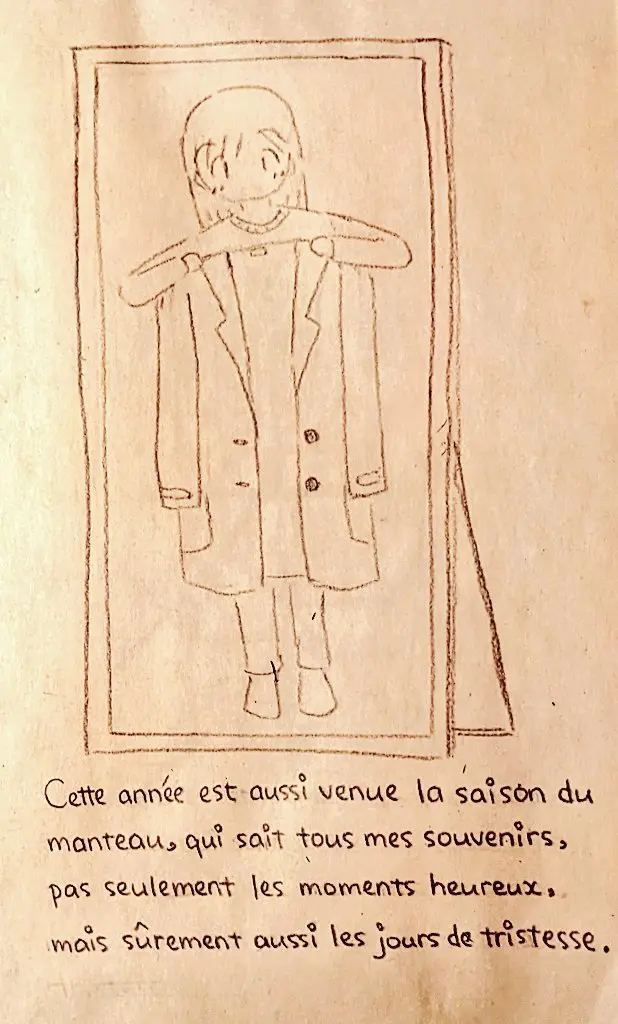 Cette année est aussi venue la saison du
manteau, qui sait tous mes souvenirs,
pas seulement les moments heureux,
mais sûrement aussi les jours de tristesse.